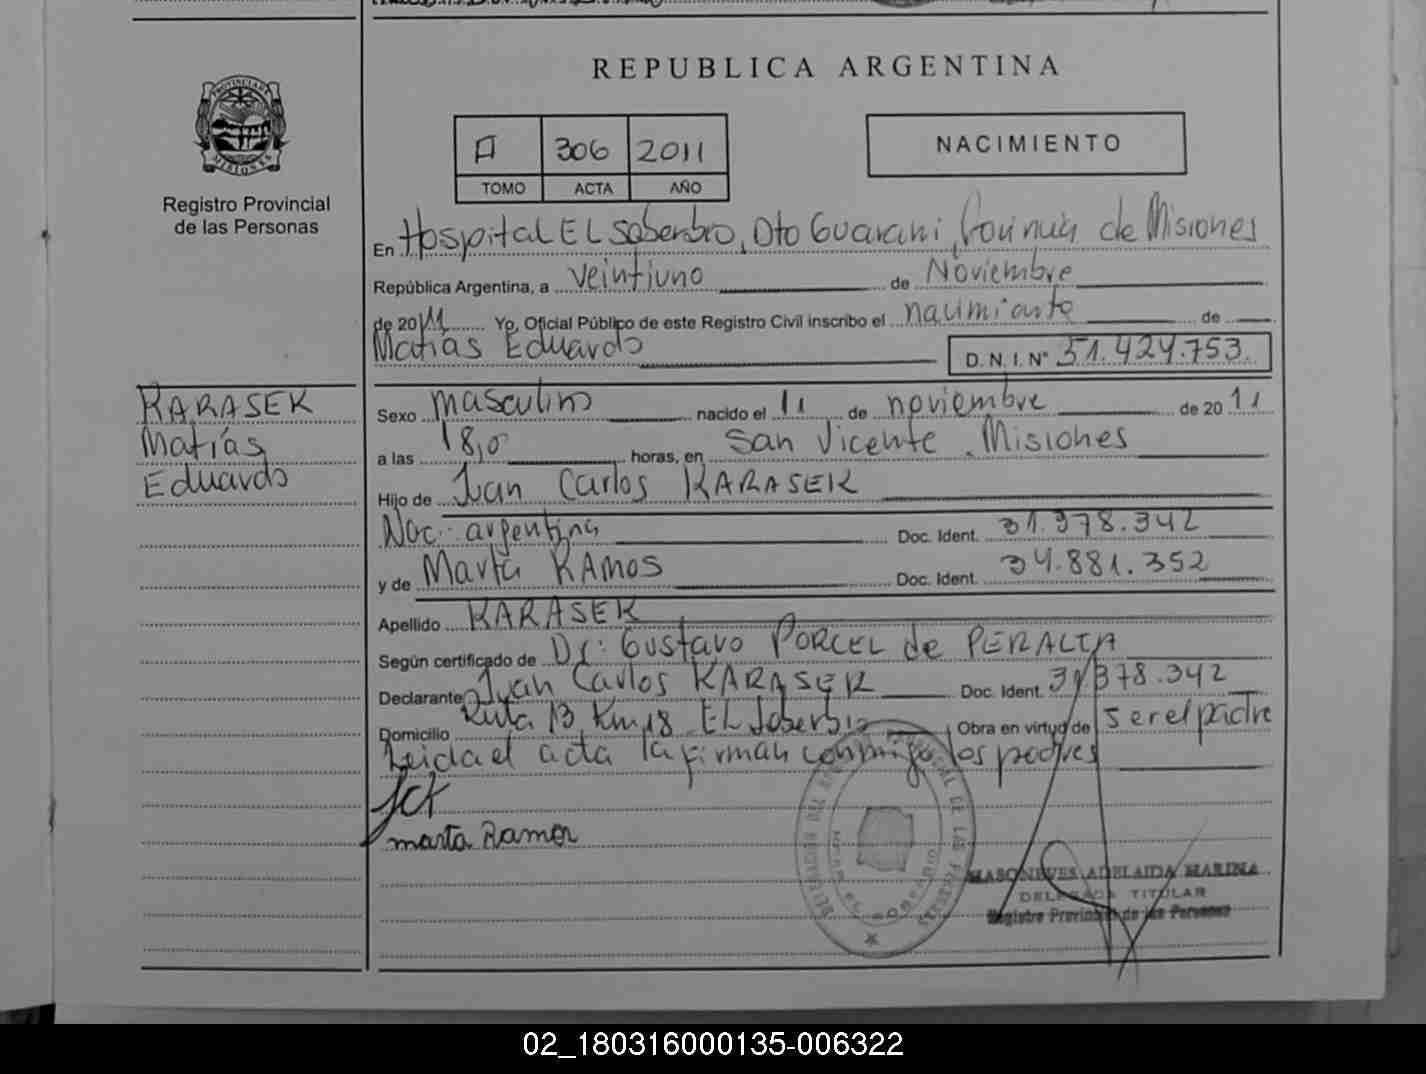 REPUBLICA ARGENTINA
PROVINCIA DE MISIONES
Registro Provincial
de las Personas
A 306 2011
TOMO ACTA AÑO
NACIMIENTO
En Hospital EL Soberbio, Dto Guarani, Provincia de Misiones
República Argentina, a veintiuno de Noviembre
de 2011 Yo, Oficial Público de este Registro Civil inscribo el nacimiento de
Matías Eduardo D.N.I. Nº 51.424.753.
KARASEK
Matías
Eduardo
Sexo masculino nacido el 11 de noviembre de 2011
a las 18,0 horas, en San Vicente, Misiones
Hijo de Juan Carlos KARASEK
Nac: argentina Doc. Ident. 31.978.342
y de Marta RAMOS Doc. Ident. 34.881.352
Apellido KARASEK
Según certificado de Dr: Gustavo PORCEL de PERALTA
Declarante Juan Carlos KARASEK Doc. Ident. 31.378.342
Domicilio Ruta 13 Km 18 EL Soberbio Obra en virtud de ser el padre
Leida el acta la firman conmigo los padres
JCK
marta Ramos
MASONEVES ADELAIDA MARINA
DELEGADA TITULAR
Registro Provincial de las Personas
02_180316000135-006322